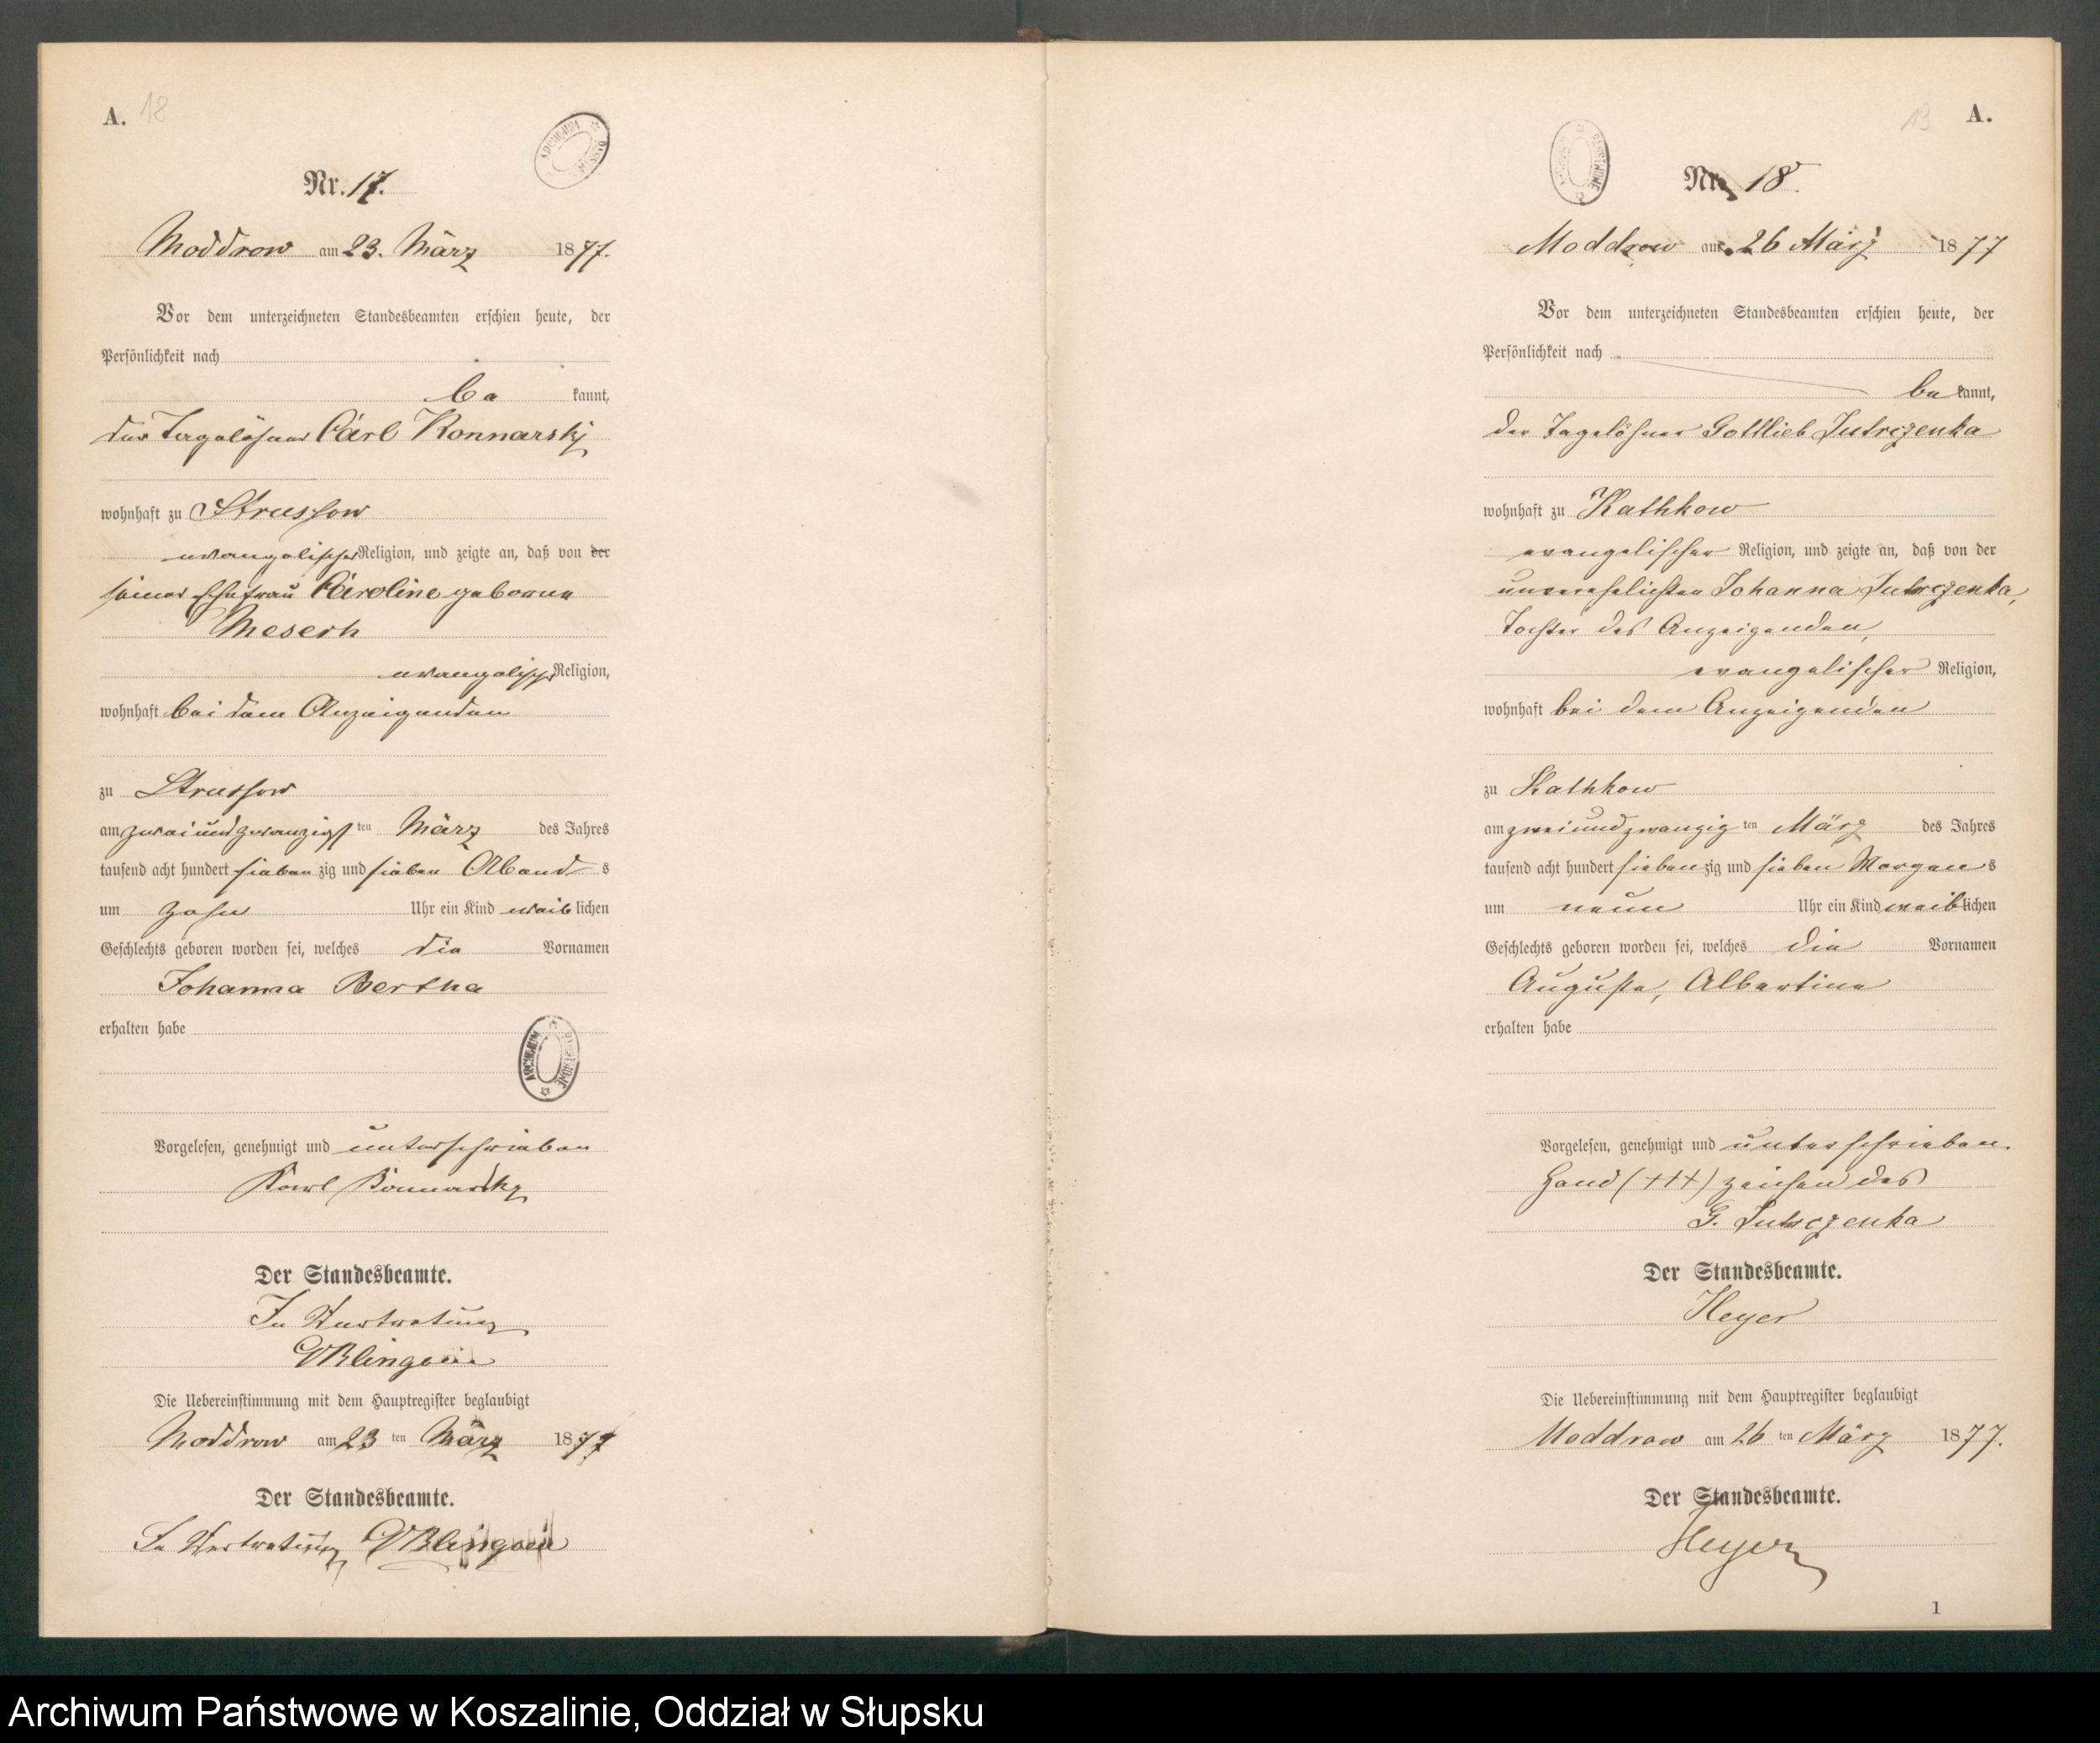 A. 18
Nr. 17.
Moddrow am 23. März 1877.
Vor dem unterzeichneten Standesbeamten erschien heute, der
Persönlichkeit nach
be kannt,
der Tagelöhner Carl Konnarsky
wohnhaft zu Strussow
evangelischer Religion, und zeigte an, daß von der
seiner Ehefrau Caroline geborne
Meserh
evangelischer Religion,
wohnhaft bei dem Anzeigenden
zu Strussow
am zweiundzwanzigsten März des Jahres
tausend acht hundert siebenzig und sieben Abends
um zehn Uhr ein Kind weiblichen
Geschlechts geboren worden sei, welches die Vornamen
Johanna Bertha
erhalten habe
Vorgelesen, genehmigt und unterschrieben
Karl Konnarsky
Der Standesbeamte.
In Vertretung
Die Uebereinstimmung mit dem Hauptregister beglaubigt
Moddrow am 23 ten März 1877
Der Standesbeamte.
In Vertretung
19 A.
Nr. 18.
Moddrow am 26 März 1877
Vor dem unterzeichneten Standesbeamten erschien heute, der
Persönlichkeit nach
be kannt,
der Tagelöhner Gottlieb Jutrczenka
wohnhaft zu Kathkow
evangelischer Religion, und zeigte an, daß von der
unverehelichten Johanna Jutrczenka,
Tochter des Anzeigenden,
evangelischer Religion,
wohnhaft bei dem Anzeigenden
zu Kathkow
am zweiundzwanzig ten März des Jahres
tausend acht hundert siebenzig und sieben Morgens
um neun Uhr ein Kind weiblichen
Geschlechts geboren worden sei, welches die Vornamen
Auguste, Albertine
erhalten habe
Vorgelesen, genehmigt und unterschrieben.
Hand (+++) zeichen des
G. Jutrczenka
Der Standesbeamte.
Heyer
Die Uebereinstimmung mit dem Hauptregister beglaubigt
Moddrow am 26 ten März 1877.
Der Standesbeamte.
Heyer
1
Archiwum Państwowe w Koszalinie, Oddział w Słupsku